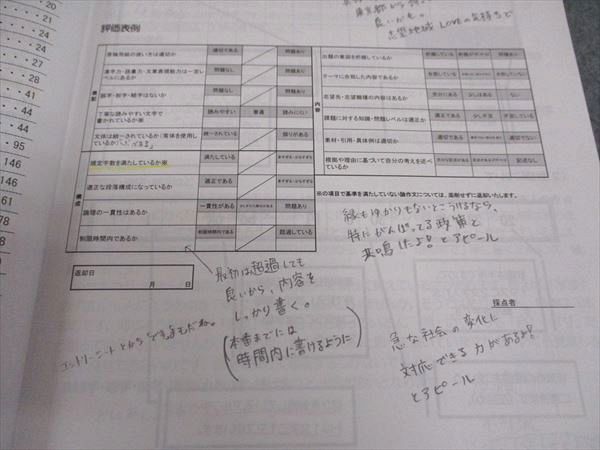 東京都から
良いかも。
志望地域 LOVEの気持ちで
評価表例
20
20
41
28
41
29
44
95
95
146
146
61
78
78
89
表記
原稿用紙の使い方は適切か
適切である
問題あり
漢字力・語彙力・文章表現能力は一定レベルにあるか
問題なし
問題あり
誤字・脱字・略字はないか
問題なし
問題あり
丁寧な読みやすい文字で書かれているか※
読みやすい
普通
読みにくい
文体は統一されているか（常体を使用しているか）
統一されている
誤りがある
構成
規定字数を満たしているか※
満たしている
適正な段落構成になっているか
適正である
問題あり
論理の一貫性はあるか
一貫性がある
問題あり
制限時間内であるか
制限時間内である
超過している
内容
出題の意図を把握しているか
把握している
テーマに合致した内容であるか
合致している
志望先・志望職種の内容はあるか
充分にある
少しはある
ない
課題に対する知識・問題レベルは適正か
適正である
少し不足
不足している
素材・引用・具体例は適切か
適切である
適切でない
根拠や理由に基づいて自分の考えを述べているか
記述なし
※の項目で基準を満たしていない論作文については、添削せずに返却いたします。
縁もゆかりもないところうけるなら、
特にがんばってる政策と
共鳴したよ！とアピール
返却日
月 日
最初は超過しても
良いから、内容を
しっかり書く。
（本番までには
時間内に書けるように）
採点者
急な社会の変化に
対応できる力があるよ！
とアピール